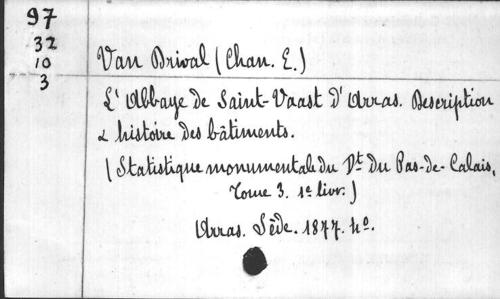 97
32
10
3
Van Drival (Chan. E.)
L'Abbaye de Saint-Vaast d'Arras. Description
& histoire des bâtiments.
(Statistique monumentale du Dt. du Pas-de-Calais,
Tome 3. 1e livr.)
Arras. Sède. 1877. 4o.